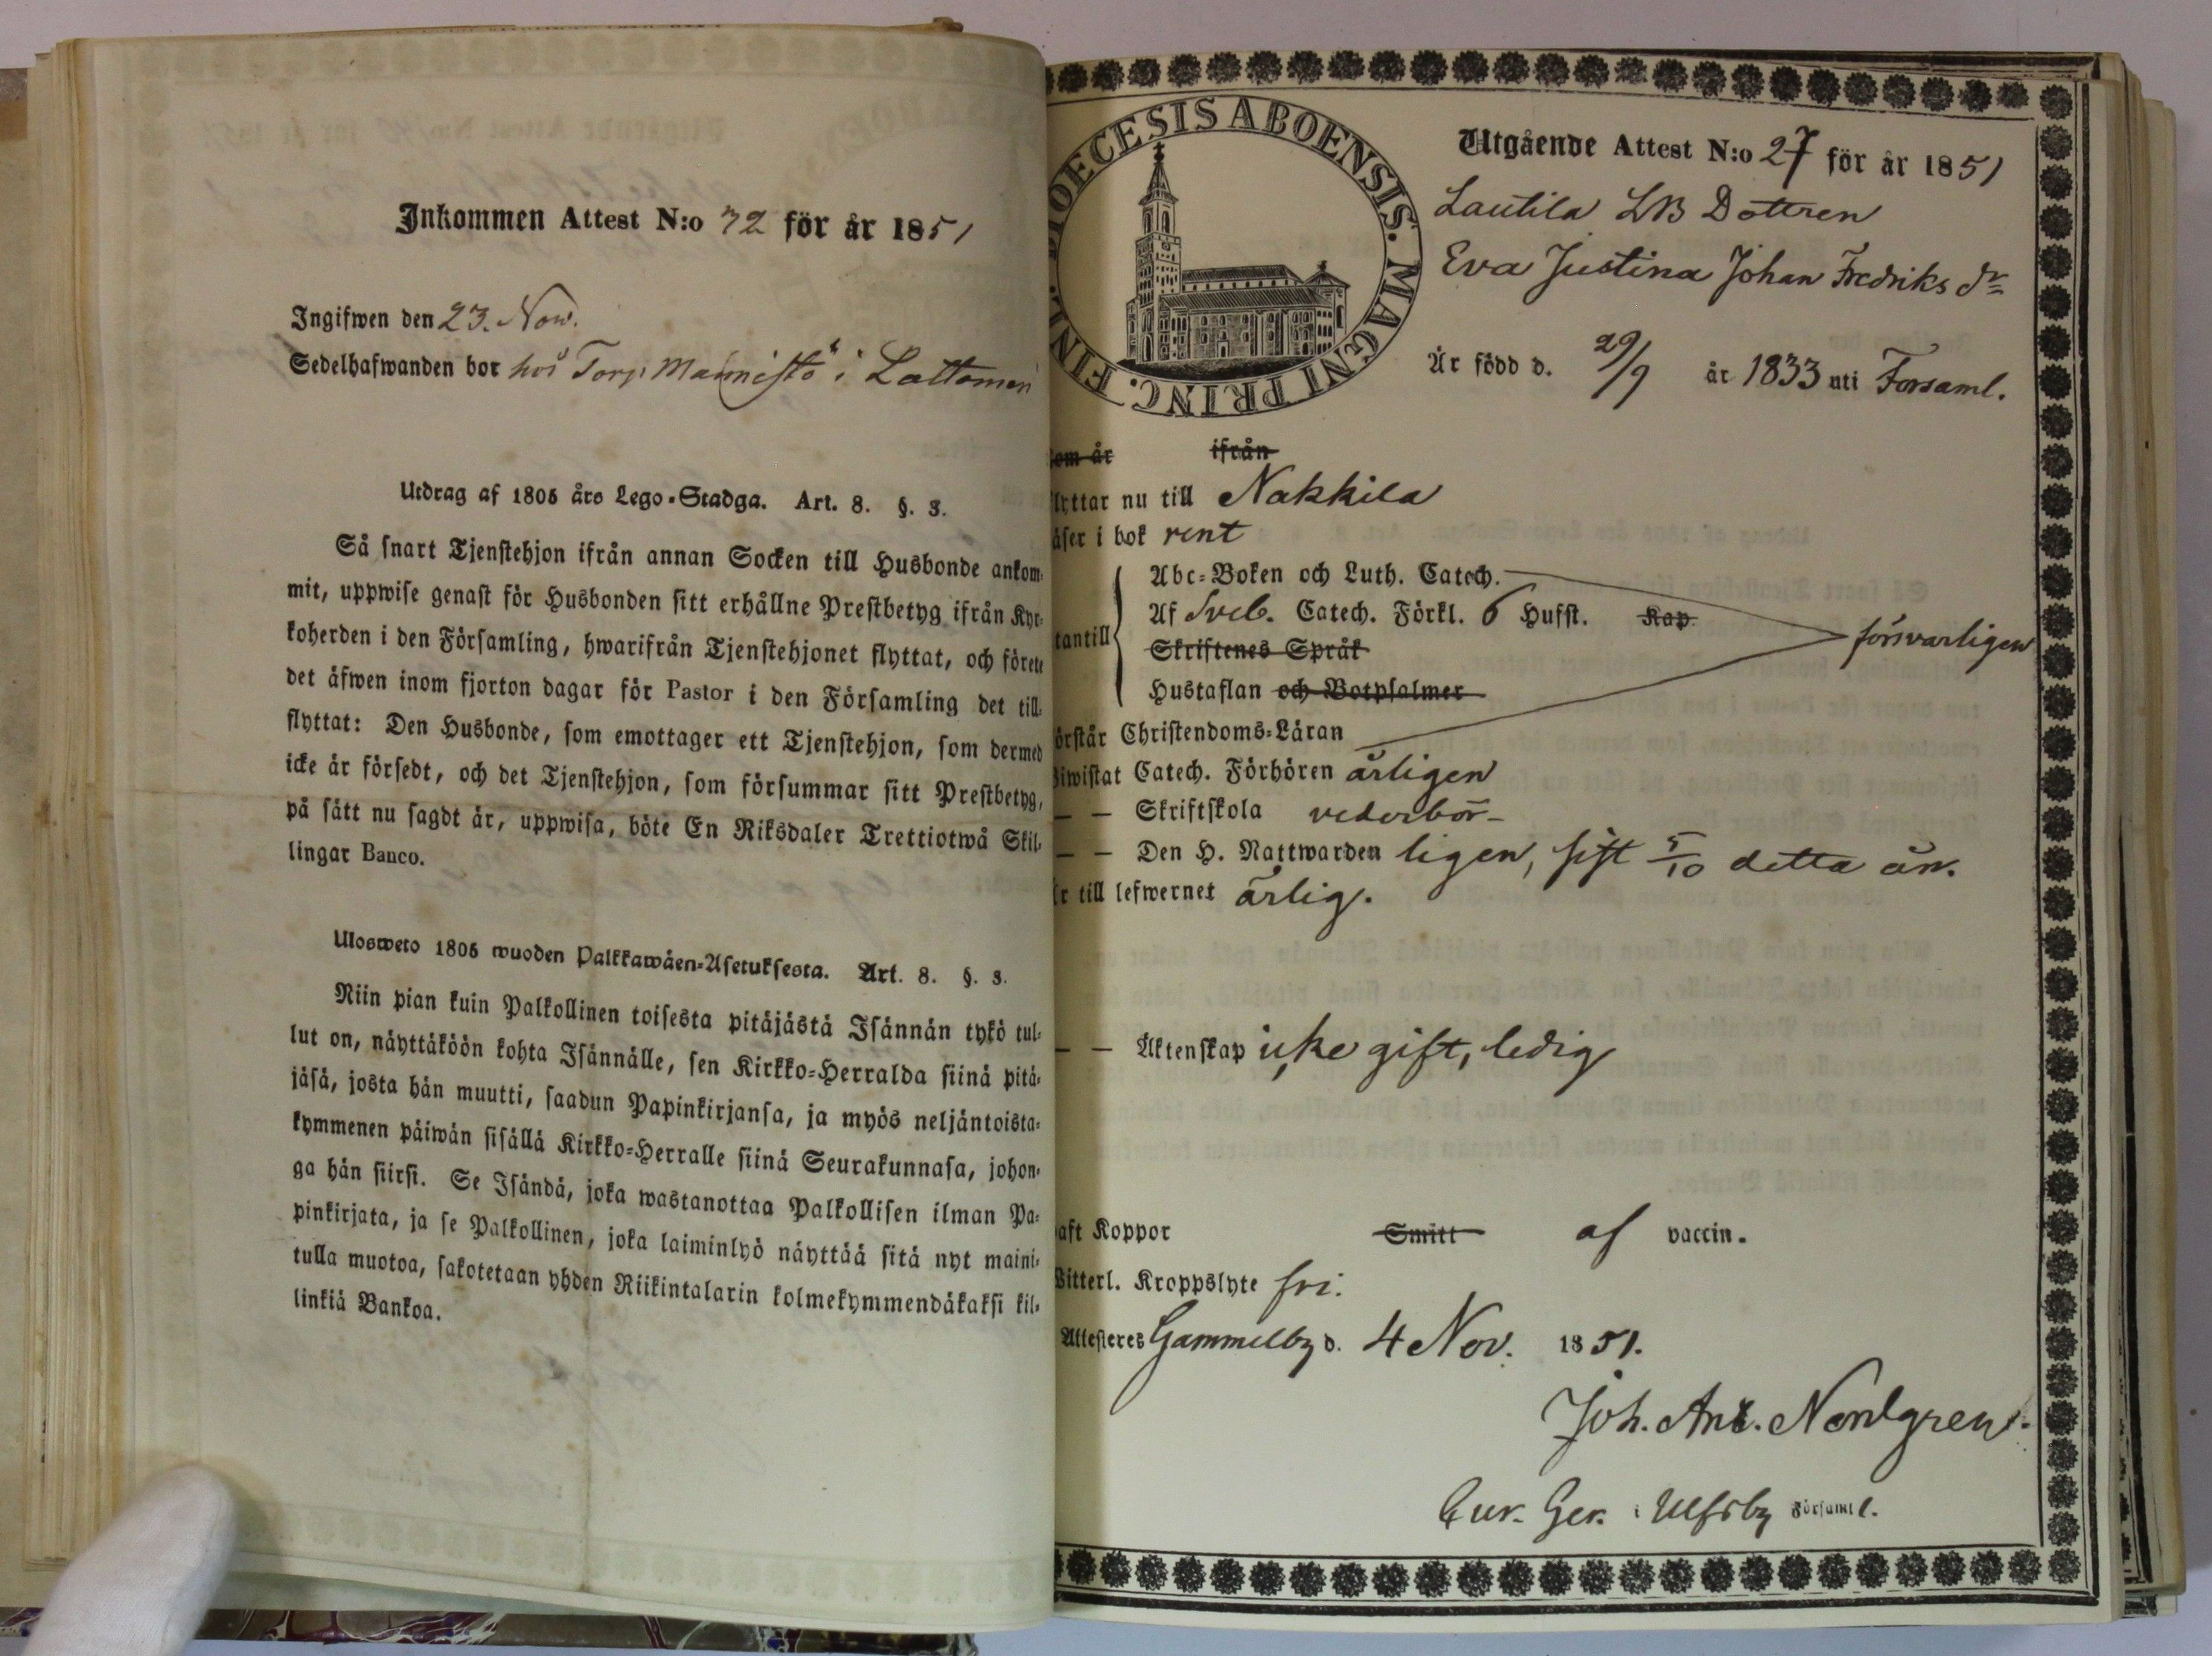 Inkommen Attest N:o 72 för år 1851
Ingifwen den 23. Nov.
Sedelhafwanden bor hos Torp. Mannistö i Lattomeri
Utdrag af 1805 års Lego-Stadga. Art. 8. §. 3.
Så snart Tjenstehjon ifrån annan Socken till Husbonde ankom-
mit, uppwise genast för Husbonden sitt erhållne Prestbetyg ifrån Kyr-
koherden i den Församling, hwarifrån Tjenstehjonet flyttat, och förete
det äfwen inom fjorton dagar för Pastor i den Församling det till-
flyttat: Den Husbonde, som emottager ett Tjenstehjon, som dermed
icke är försedt, och det Tjenstehjon, som försummar sitt Prestbetyg,
på sätt nu sagdt är, uppwisa, böte En Riksdaler Trettiotwå Skil-
lingar Banco.
Ulosweto 1805 wuoden Palkkawäen-Asetuksesta. Art. 8. §. 3.
Niin pian kuin Palkollinen toisesta pitäjästä Isännän tykö tul-
lut on, näyttäköön kohta Isännälle, sen Kirkko-Herralda siinä pitä-
jäsä, josta hän muutti, saadun Papinkirjansa, ja myös neljäntoista-
kymmenen päiwän sisällä Kirkko-Herralle siinä Seurakunnasa, johon-
ga hän siirsi. Se Isändä, joka wastanottaa Palkollisen ilman Pa-
pinkirjata, ja se Palkollinen, joka laiminlyö näyttää sitä nyt maini-
tulla muotoa, sakotetaan yhden Riikintalarin kolmekymmendäkaksi kil-
linkiä Bankoa.
DIOECESIS ABOENSIS. MAGNI PRINC. FINL.
Utgående Attest N:o 27 för år 1851
Lautila LB Dottren
Eva Justina Johan Fredriks dr
Är född d. 29/9 år 1833 uti Forsaml.
om år ifrån
lyttar nu till Nakkila
äser i bok rent
Abc-Boken och Luth. Catech.
Af Sveb. Catech. Förkl. 6 Hufst. Kap.
tantill
Skriftenes Språk
försvarligen
Hustaflan och Botpsalmer
örstår Christendoms-Läran
iwistat Catech. Förhören årligen
— — Skriftskola vederbör-
— — Den H. Nattwarden ligen, sist 5/10 detta år.
r till lefwernet ärlig.
— — Äktenskap icke gift, ledig
aft Koppor Smitt af vaccin.
itterl. Kroppslyte fri.
Attesteres Gammelby d. 4 Nov. 1851.
Joh. Ant. Nordgren.
Cur. Ger. i Ulfsby Församl.